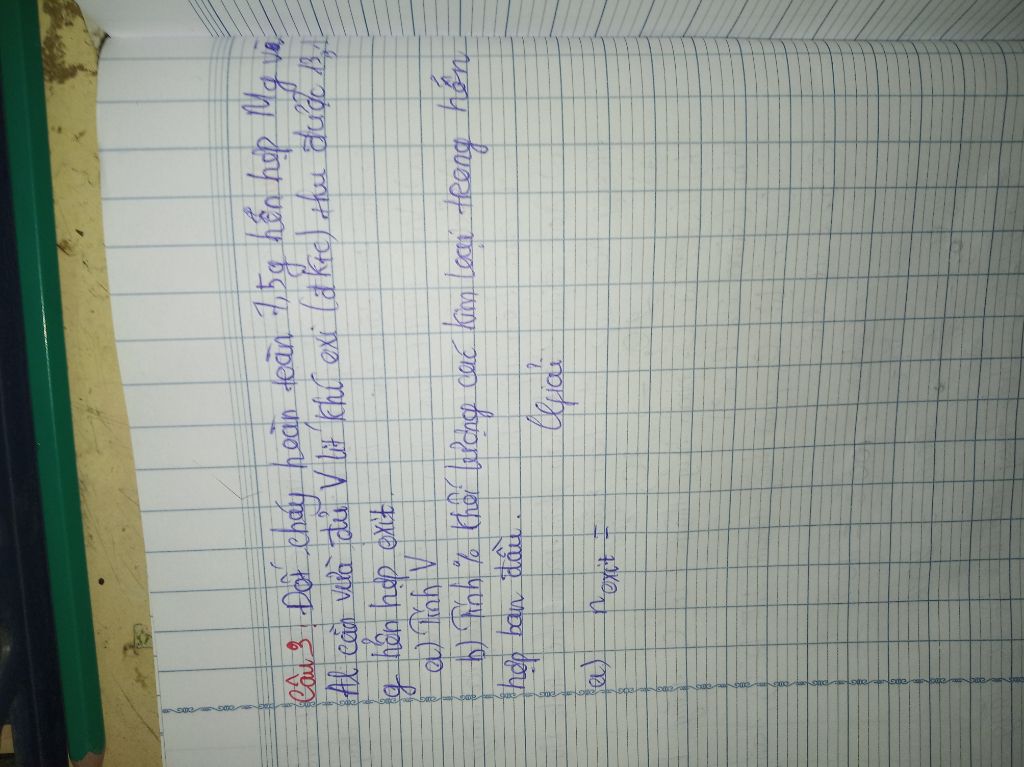 Câu 3: Đốt cháy hoàn toàn 7,5g hỗn hợp Mg và
Al cần vừa đủ V lít khí oxi (đktc) thu được 13,
g hỗn hợp oxit
a) Tính V
b) Tính % khối lượng các kim loại trong hỗn
hợp ban đầu.
Giải
a) noxit =